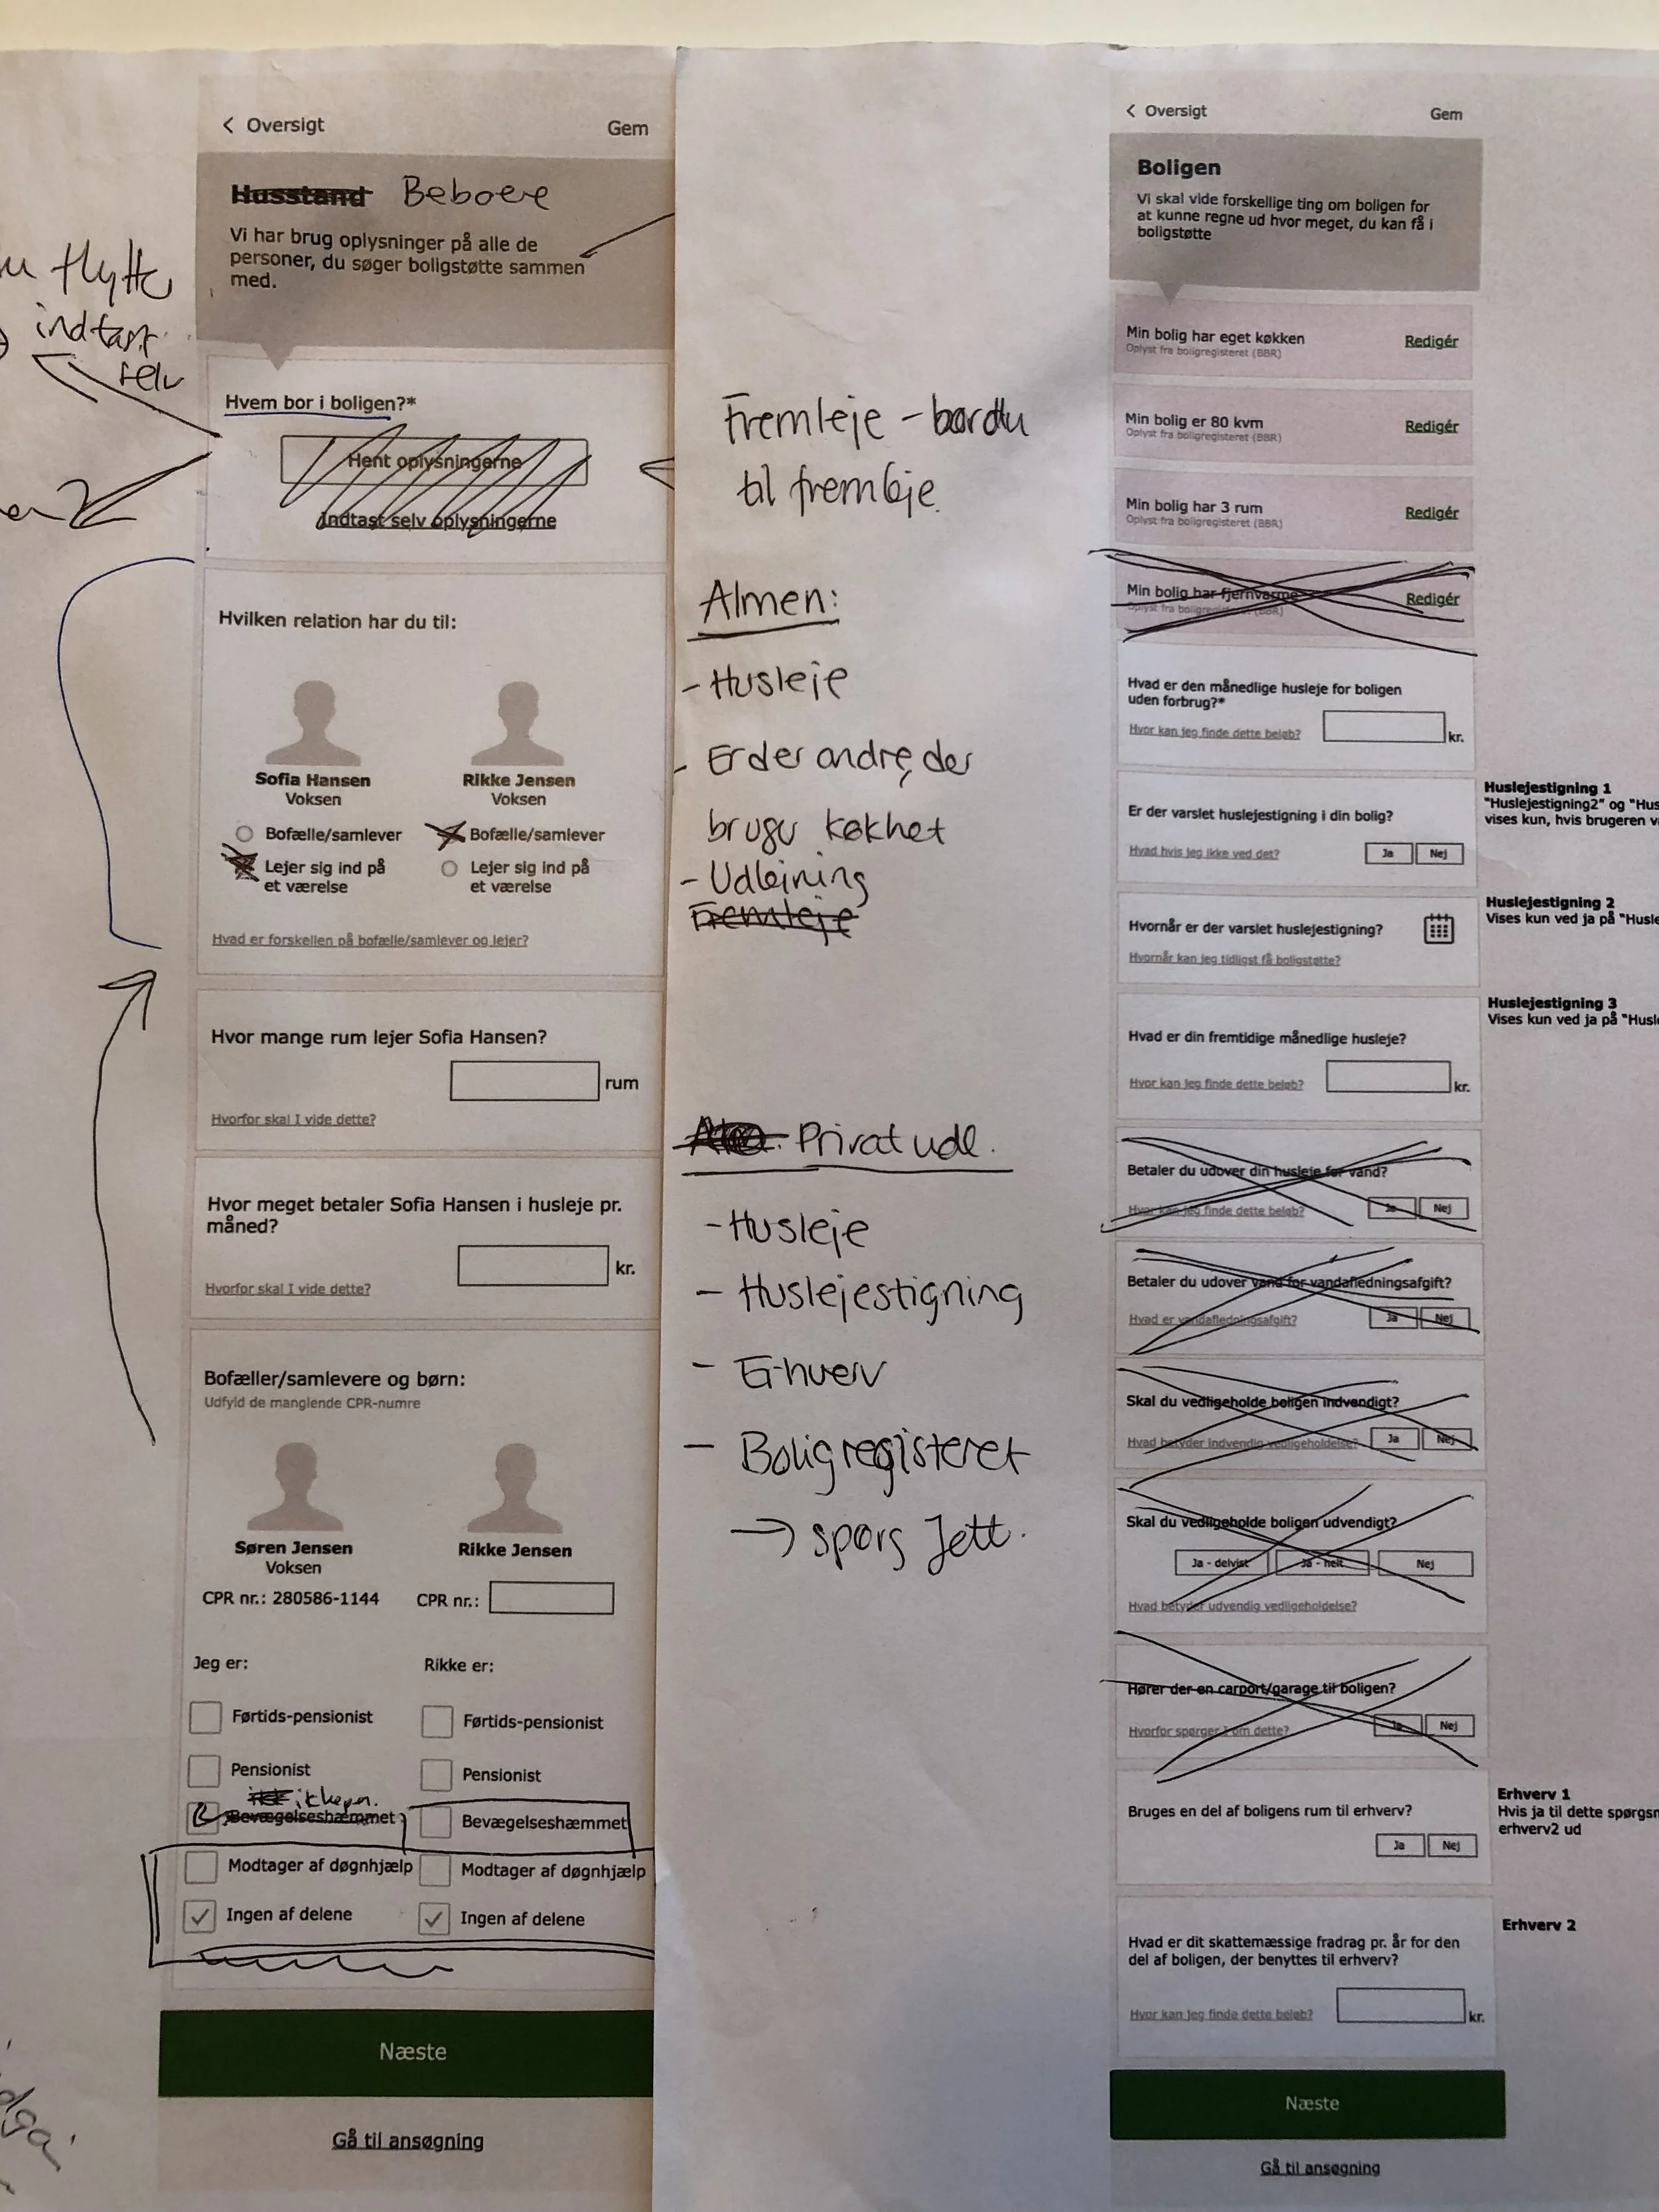 < Oversigt
Gem
Husstand Beboere
Vi har brug oplysninger på alle de
personer, du søger boligstøtte sammen
med.
flytte
indtast
selv
Hvem bor i boligen?*
Hent oplysningerne
Indtast selv oplysningerne
Hvilken relation har du til:
Sofia Hansen
Voksen
Rikke Jensen
Voksen
Bofælle/samlever
Lejer sig ind på
et værelse
Bofælle/samlever
Lejer sig ind på
et værelse
Hvad er forskellen på bofælle/samlever og lejer?
Hvor mange rum lejer Sofia Hansen?
rum
Hvorfor skal I vide dette?
Hvor meget betaler Sofia Hansen i husleje pr.
måned?
kr.
Hvorfor skal I vide dette?
Bofæller/samlevere og børn:
Udfyld de manglende CPR-numre
Søren Jensen
Voksen
CPR nr.: 280586-1144
Rikke Jensen
CPR nr.:
Jeg er:
Førtids-pensionist
Pensionist
Bevægelseshæmmet
Modtager af døgnhjælp
Ingen af delene
Rikke er:
Førtids-pensionist
Pensionist
Bevægelseshæmmet
Modtager af døgnhjælp
Ingen af delene
Næste
Gå til ansøgning
Fremleje - bor du
til fremleje
Almen:
- Husleje
- Er der andre, der
bruger køkket
- Udlejning
Fremleje
Privat udl.
- Husleje
- Huslejestigning
- Erhverv
- Boligregisteret
→ spørg Jett.
< Oversigt
Gem
Boligen
Vi skal vide forskellige ting om boligen for
at kunne regne ud hvor meget, du kan få i
boligstøtte
Min bolig har eget køkken
Oplyst fra boligregisteret (BBR)
Redigér
Min bolig er 80 kvm
Oplyst fra boligregisteret (BBR)
Redigér
Min bolig har 3 rum
Oplyst fra boligregisteret (BBR)
Redigér
Min bolig har fjernvarme
Oplyst fra boligregisteret (BBR)
Redigér
Hvad er den månedlige husleje for boligen
uden forbrug?*
Hvor kan jeg finde dette beløb?
kr.
Er der varslet huslejestigning i din bolig?
Hvad hvis jeg ikke ved det?
Ja
Nej
Huslejestigning 1
"Huslejestigning2" og "Hus
vises kun, hvis brugeren
Hvornår er der varslet huslejestigning?
Hvornår kan jeg tidligst få boligstøtte?
Huslejestigning 2
Vises kun ved ja på "Husle
Hvad er din fremtidige månedlige husleje?
Hvor kan jeg finde dette beløb?
kr.
Huslejestigning 3
Vises kun ved ja på "Husl
Betaler du udover din husleje for vand?
Hvor kan jeg finde dette beløb?
Ja
Nej
Betaler du udover vand for vandafledningsafgift?
Hvad er vandafledningsafgift?
Ja
Nej
Skal du vedligeholde boligen indvendigt?
Hvad betyder indvendig vedligeholdelse?
Ja
Nej
Skal du vedligeholde boligen udvendigt?
Ja - delvist
Ja - helt
Nej
Hvad betyder udvendig vedligeholdelse?
Hører der en carport/garage til boligen?
Hvorfor spørger I om dette?
Ja
Nej
Bruges en del af boligens rum til erhverv?
Ja
Nej
Erhverv 1
Hvis ja til dette spørgsm
erhverv2 ud
Hvad er dit skattemæssige fradrag pr. år for den
del af boligen, der benyttes til erhverv?
Hvor kan jeg finde dette beløb?
kr.
Erhverv 2
Næste
Gå til ansøgning